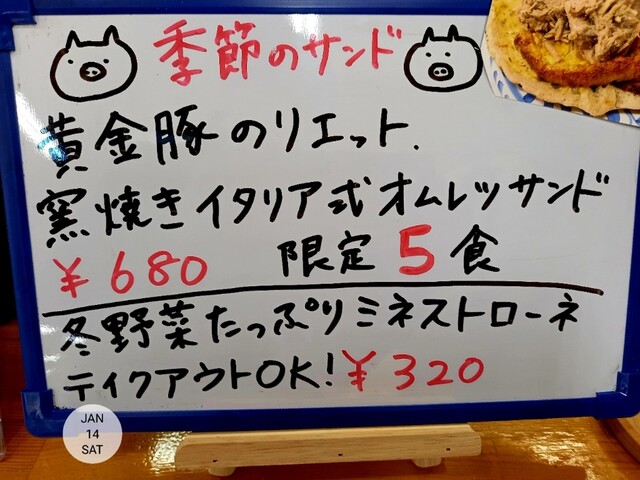 季節のサンド
黄金豚のリエット.
窯焼きイタリア式オムレツサンド
¥680 限定5食
冬野菜たっぷりミネストローネ
テイクアウトOK!¥320
JAN
14
SAT